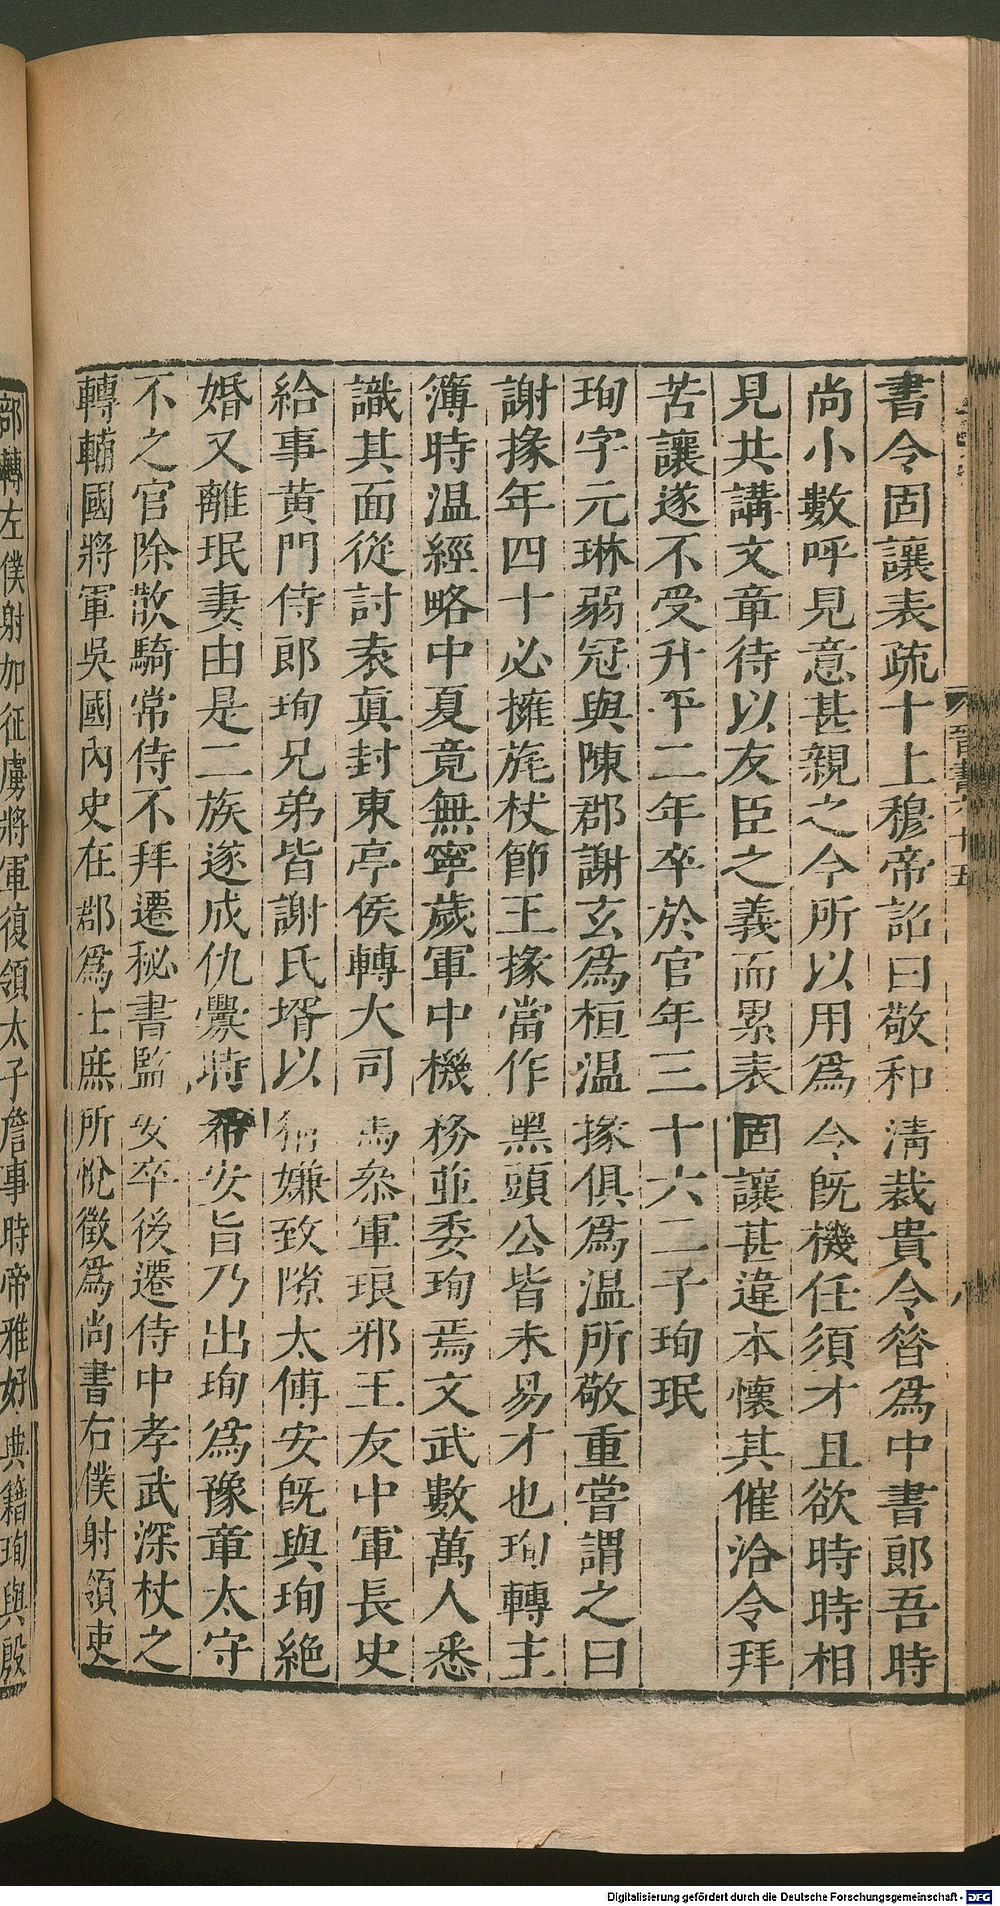 書令固讓表疏十上穆帝詔曰敬和清裁貴令昝爲中書郎吾時
尚小數呼見意甚親之今所以用爲令既機任須才且欲時時相
見共講文章待以友臣之義而累表固讓甚違本懷其催洽令拜
苦讓遂不受升平二年卒於官年三十六二子珣珉
珣字元琳弱冠與陳郡謝玄爲桓温掾俱爲温所敬重嘗謂之曰
謝掾年四十必擁旄杖節王掾當作黑頭公皆未易才也珣轉主
簿時温經略中夏竟無寧歲軍中機務並委珣焉文武數萬人悉
識其面從討袁眞封東亭侯轉大司馬叅軍琅邪王友中軍長史
給事黄門侍郎珣兄弟皆謝氏壻以猜嫌致隙太傅安既與珣絶
婚又離珉妻由是二族遂成仇釁時希安旨乃出珣爲豫章太守
不之官除散騎常侍不拜遷秘書監安卒後遷侍中孝武深杖之
轉輔國將軍吳國內史在郡爲士庶所悅徵爲尚書右僕射領吏
部轉左僕射加征虜將軍復領太子詹事時帝雅好典籍珣與殷
晉書六十五
八
Digitalisierung gefördert durch die Deutsche Forschungsgemeinschaft - DFG